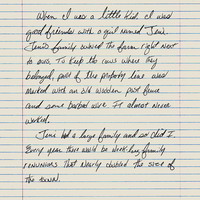 When I was a little kid, I was
good friends with a girl named Jeni.
Jeni's family owned the farm right next
to ours. To keep the cows where they
belonged, part of the property line was
marked with an old wooden post fence
and some barbed wire. It almost never
worked.
Jeni had a large family and so did I.
Every year there would be week-long family
reunions that nearly doubled the size of
the town.